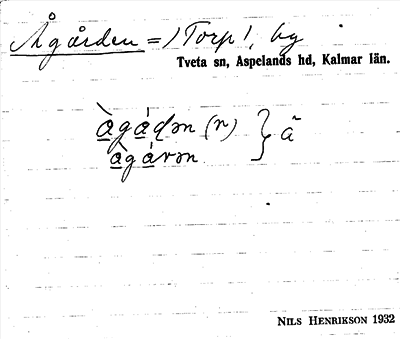 Ågården = ) Torp !, by
Tveta sn, Aspelands hd, Kalmar län.
àgáɖən (n) } ā̃
àgárən
NILS HENRIKSON 1932